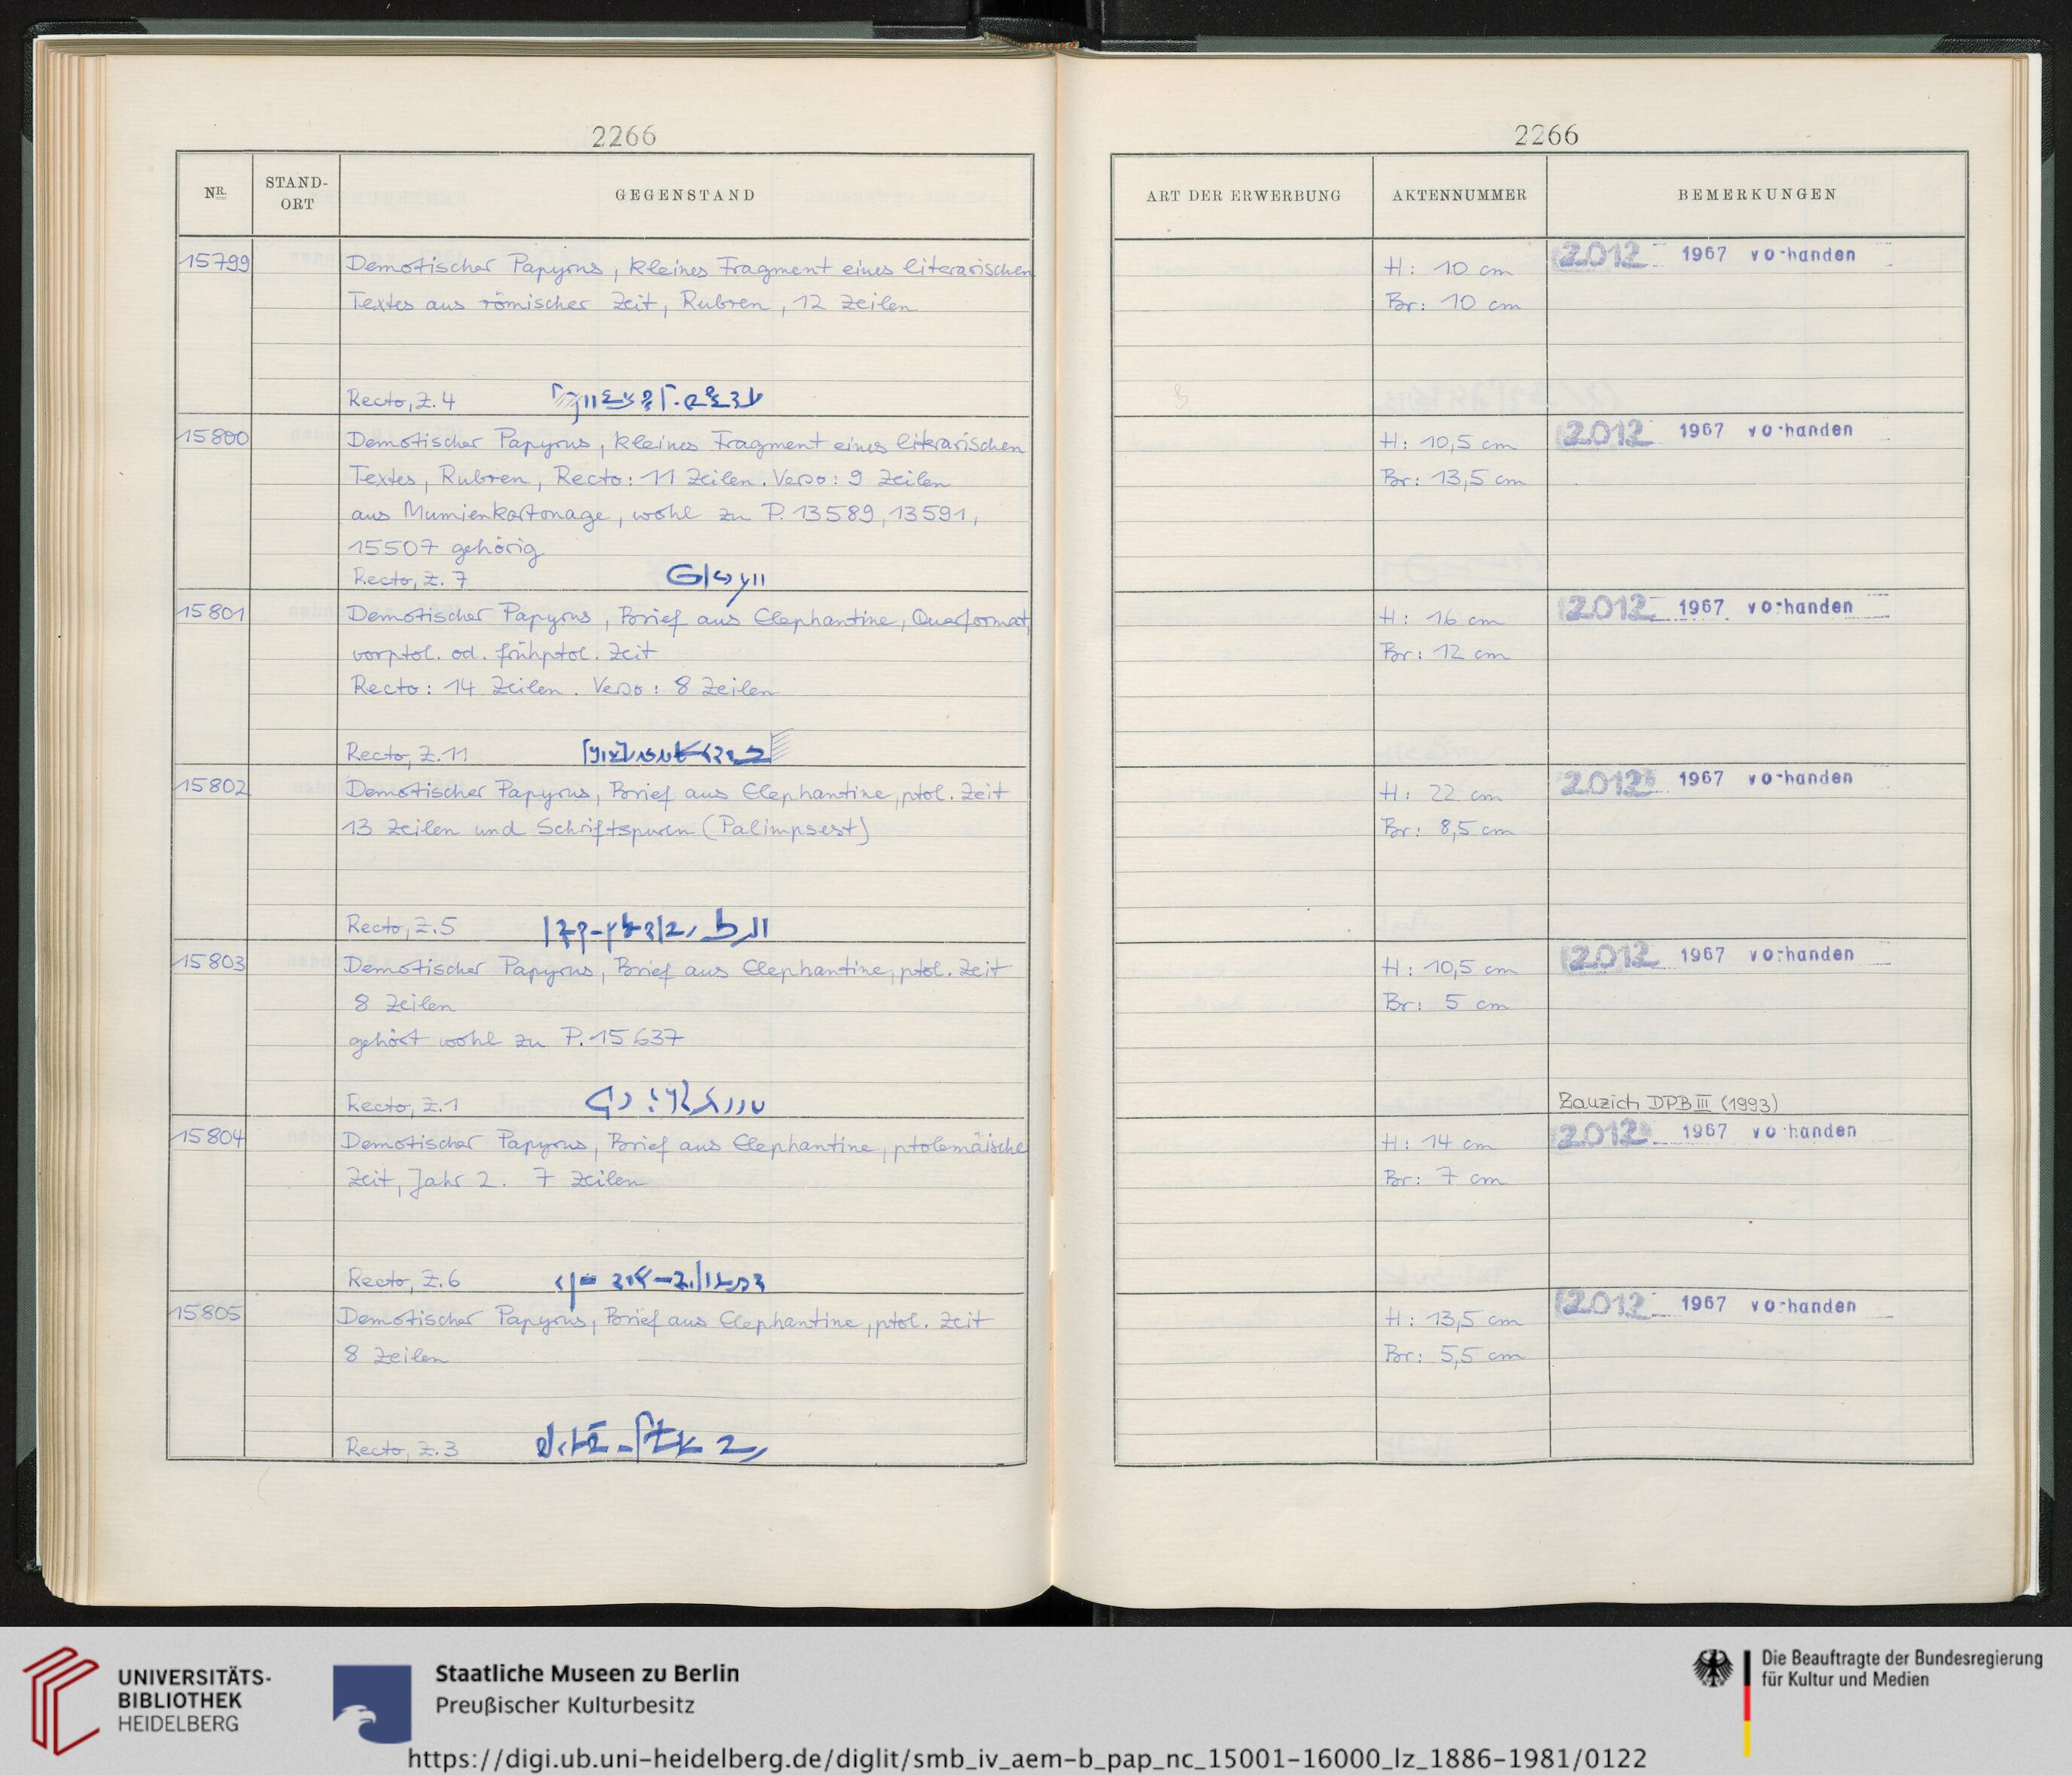 2266
NR.
STAND-
ORT
GEGENSTAND
15799
Demotischer Papyrus, kleines Fragment eines literarischen
Textes aus römischer Zeit, Rubren, 12 Zeilen
Recto, Z. 4
15800
Demotischer Papyrus, kleines Fragment eines literarischen
Textes, Rubren, Recto: 11 Zeilen. Verso: 9 Zeilen
aus Mumienkartonage, wohl zu P. 13589, 13591,
15507 gehörig
Recto, Z. 7
15801
Demotischer Papyrus, Brief aus Elephantine, Querformat,
vorptol. od. frühptol. Zeit
Recto: 14 Zeilen. Verso: 8 Zeilen
Recto, Z. 11
15802
Demotischer Papyrus, Brief aus Elephantine, ptol. Zeit
13 Zeilen und Schriftspuren (Palimpsest)
Recto, Z. 5
15803
Demotischer Papyrus, Brief aus Elephantine, ptol. Zeit
8 Zeilen
gehört wohl zu P. 15637
Recto, Z. 1
15804
Demotischer Papyrus, Brief aus Elephantine, ptolemäische
Zeit, Jahr 2. 7 Zeilen
Recto, Z. 6
15805
Demotischer Papyrus, Brief aus Elephantine, ptol. Zeit
8 Zeilen
Recto, Z. 3
2266
ART DER ERWERBUNG
AKTENNUMMER
BEMERKUNGEN
H: 10 cm
2012 1967 vorhanden
Br: 10 cm
H: 10,5 cm
2012 1967 vorhanden
Br: 13,5 cm
H: 16 cm
2012 1967 vorhanden
Br: 12 cm
H: 22 cm
2012 1967 vorhanden
Br: 8,5 cm
H: 10,5 cm
2012 1967 vorhanden
Br: 5 cm
Zauzich DPB III (1993)
H: 14 cm
2012 1967 vorhanden
Br: 7 cm
H: 13,5 cm
2012 1967 vorhanden
Br: 5,5 cm
UNIVERSITÄTS-
BIBLIOTHEK
HEIDELBERG
Staatliche Museen zu Berlin
Preußischer Kulturbesitz
Die Beauftragte der Bundesregierung
für Kultur und Medien
https://digi.ub.uni-heidelberg.de/diglit/smb_iv_aem-b_pap_nc_15001-16000_lz_1886-1981/0122